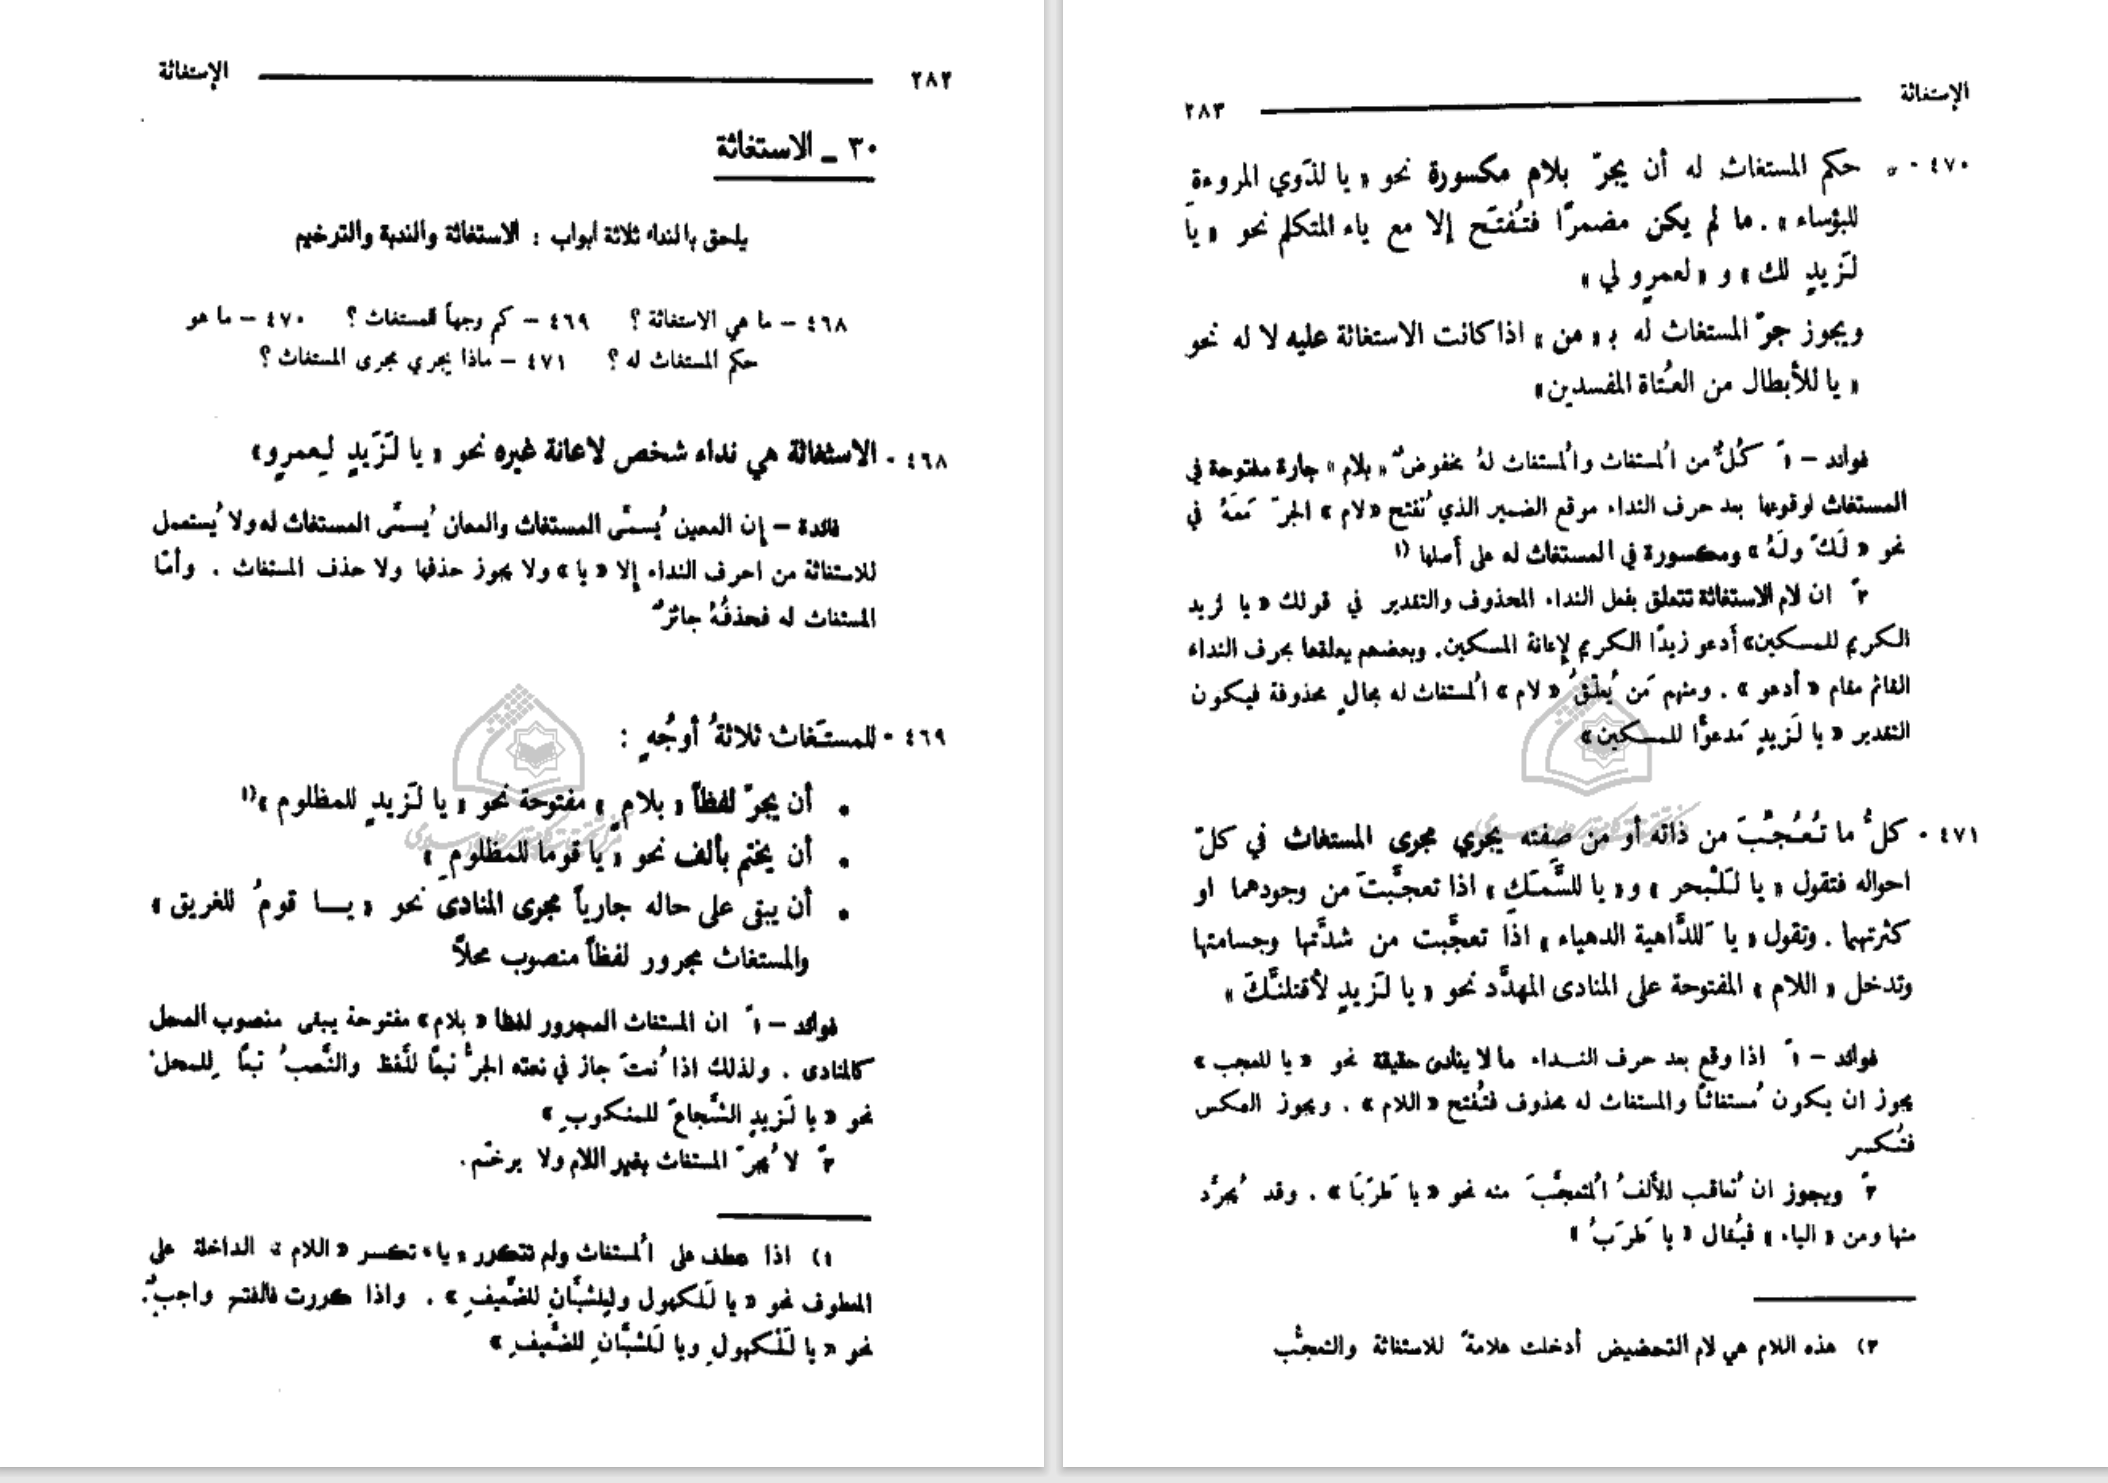 ٢٨٢ الإستغاثة
٣٠ ــ الاستغاثة
يلحق بالنداء ثلاثة ابواب : الاستغاثة والندبة والترخيم
٤٦٨ – ما هي الاستغاثة ؟ ٤٦٩ – كم وجهاً للمستغاث ؟ ٤٧٠ – ما هو
حكم المستغاث له ؟ ٤٧١ – ماذا يجري مجرى المستغاث ؟
٤٦٨ • الاستغاثة هي نداء شخص لاعانة غيره نحو « يا لَزَيدٍ لِعمرٍو»
فائدة – إن المعين يُسمَّى المستغاث والمعان يُسمَّى المستغاث له ولا يُستعمل
للاستغاثة من احرف النداء إلا « يا » ولا يجوز حذفها ولا حذف المستغاث . وأمّا
المستغاث له فحذفُهُ جائزٌ
٤٦٩ • للمستَغاث ثلاثةُ أوجُهٍ :
• أن يجرّ لفظاً « بلامٍ » مفتوحة نحو « يا لَزيدٍ للمظلوم »(١
• أن يختم بألف نحو « يا قوما للمظلومِ »
• أن يبقى على حاله جارياً مجرى المنادى نحو « يـــا قومُ للغريق »
والمستغاث مجرور لفظاً منصوب محلاًّ
فوائد – ١ً ان المستغاث المجرور لفظا « بلام» مفتوحة يبقى منصوب المحل
كالمنادى . ولذلك اذا نُعتَ جاز في نعته الجرُّ تبعًا للَّفظ والنَّصبُ تبعًا لِلمحلّ
نحو « يا لَزيدٍ الشَّجاعَ للمنكوبِ »
٢ً لا يُجرّ المستغاث بغير اللام ولا يرخَّم.
١) اذا عطف على المُستغاث ولم تتكرر « يا » تكسر « اللام » الداخلة على
المعطوف نحو « يا لَلكهول ولِلشبَّانِ للضَّعيفِ » . واذا كررت فالفتح واجبٌ.
نحو « يا لَلكهولِ ويا لَلشبَّانِ للضَّعيفِ »
الإستغاثة ٢٨٣
٤٧٠ • حكم المستغاث له أن يجرّ بلام مكسورة نحو « يا لذَوي المروءة
للبؤساء » . ما لم يكن مضمرًا فتُفتَح إلا مع ياء المتكلم نحو « يا
لَزيدٍ لك » و « لعمرٍو لي »
ويجوز جرّ المستغاث له بـ « من » اذا كانت الاستغاثة عليه لا له نحو
« يا للأبطال من العُتاة المفسدين»
فوائد – ١ً كُلٌّ من المُستغاث والمُستغاث لهُ مخفوضٌ « بلام » جارة مفتوحة في
المستغاث لوقوعها بعد حرف النداء موقع الضمير الذي تُفتح « لام » الجرّ مَعَهُ في
نحو « لَكَ ولَهُ » ومكسورة في المستغاث له على أصلها (١
٢ً ان لام الاستغاثة تتعلق بفعل النداء المحذوف والتقدير في قولك « يا لزيد
الكريم للمسكين» أدعو زيدًا الكريم لإعانة المسكين. وبعضهم يعلقها بحرف النداء
القائم مقام « أدعو » . ومنهم مَن يُعلّقُ « لام » المُستغاث له بحالٍ محذوفة فيكون
التقدير « يا لَزيدٍ مَدعوًّا للمسكين»
٤٧١ • كلُّ ما تُعُجِّبَ من ذاته أو من صفته يجري مجرى المستغاث في كلّ
احواله فتقول « يا لَلْبحر » و« يا للسَّمَكِ » اذا تعجَّبتَ من وجودهما او
كثرتهما . وتقول « يا لَلدَّاهية الدهياء » اذا تعجَّبت من شدَّتها وجسامتها
وتدخل « اللام » المفتوحة على المنادى المهدَّد نحو « يا لَزيدٍ لأقتلنَّكَ »
فوائد – ١ً اذا وقع بعد حرف النـــداء ما لا ينادى حقيقة نحو « يا للعجب »
يجوز ان يكون مُستغاثًا والمستغاث له محذوف فتُفتح « اللام » . ويجوز العكس
فتُكسر
٢ً ويجوز ان تُعاقب للألفُ المُتعجَّبَ منه نحو « يا طَرَبَا » . وقد يُجرَّد
منها ومن « الياء » فيُقال « يا طَرَبُ »
٢) هذه اللام هي لام التحضيض أدخلت علامةً للاستغاثة والتعجّب